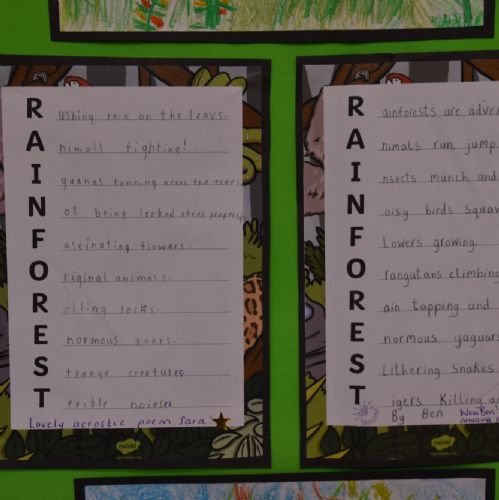 Rushing rain on the leavs.
Animals fighting!.
Iguanas running across the trees
Not being looked after properly
Fasginating flowers.
Original animals.
Rolling rocks.
Enormous roars.
Strange creatures
Terrible noieses
Lovely acrostic poem Sara
twinkl
Rainforests are adve
Animals run, jump
Insects munch and
Noisy birds squaw
FLowers growing.
Orangutans climbing
Rain tapping and
Enormous yaguars
SLithering snakes
Tigers Killing an
By Ben
Wow Ben
amazing
twinkl